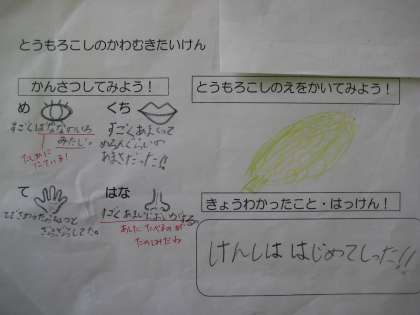 とうもろこしのかわむきたいけん
かんさつしてみよう！
め
すごくはなのいろ
みたい。
たしかに
にている！
くち
すごくあまくって
あまさだった!!
て
さらさらしてた。
はな
すごくあまい
あんたにたべるのが
たのしみだね
とうもろこしのえをかいてみよう！
きょうわかったこと・はっけん！
けんしは はじめてしった!!